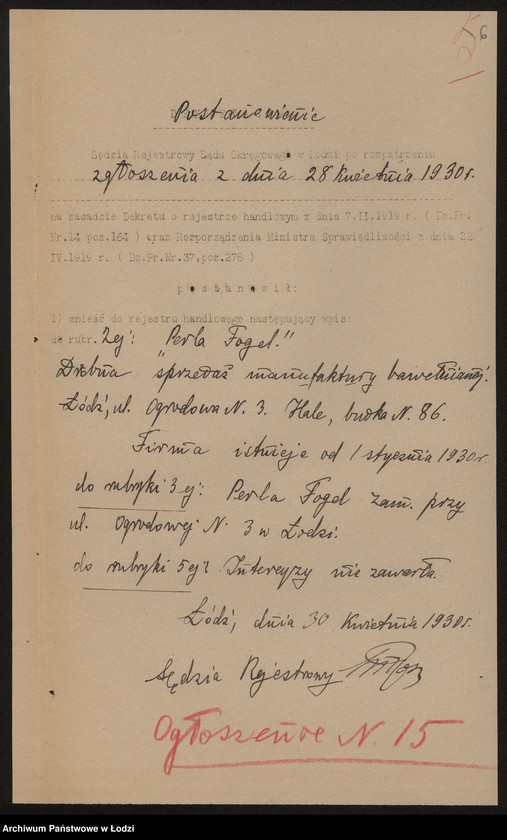 6
Postanowienie
Sędzia Rejestrowy Sądu Okręgowego w Łodzi po rozpatrzeniu
zgłoszenia z dnia 28 kwietnia 1930 r.
na zasadzie Dekretu o rejestrze handlowym z dnia 7.II.1919 r. ( Dz.Pr.
Nr.14 poz.164 ) oraz Rozporządzenia Ministra Sprawiedliwości z dnia 22
IV.1919 r. ( Dz.Pr.Nr.37,poz.276 )
postanowił:
1) wnieść do rejestru handlowego następujący wpis:
do rubr. 2ej: "Perla Fogel."
Drobna sprzedaż manufaktury bawełnianej.
Łódź, ul. Ogrodowa N. 3. Hale, budka N. 86.
Firma istnieje od 1 stycznia 1930 r.
do rubryki 3ej: Perla Fogel zam. przy
ul. Ogrodowej N. 3 w Łodzi.
do rubryki 5ej: Intercyzy nie zawarła.
Łódź, dnia 30 kwietnia 1930 r.
Sędzia Rejestrowy
Ogłoszenie N. 15
Archiwum Państwowe w Łodzi